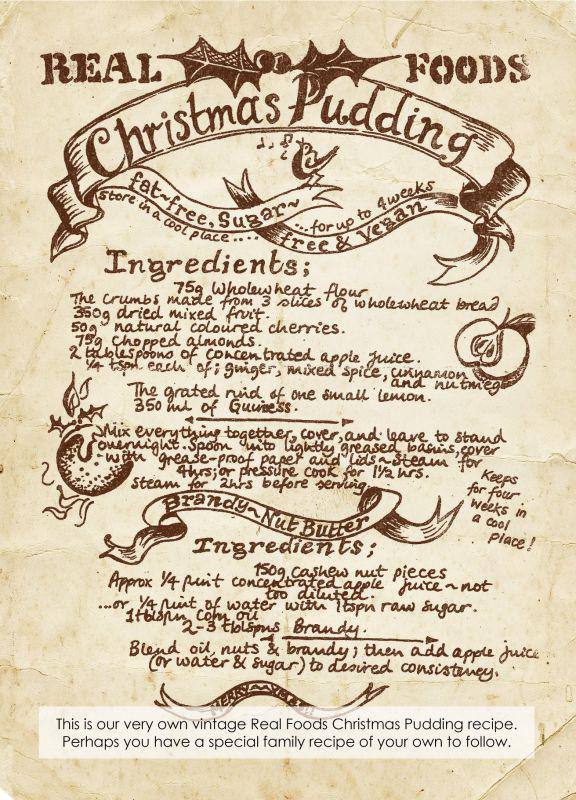 REAL FOODS
Christmas Pudding
fat~free, Sugar~
free & Vegan
Store in a cool place ....
...for up to 4 weeks
Ingredients;
75g Wholewheat flour
The Crumbs made from 3 slices of wholewheat bread
350g dried mixed fruit.
50g natural coloured cherries.
75g chopped almonds.
2 tablespoons of concentrated apple juice.
1/4 tspn each of; ginger, mixed spice, cinnamon
and nutmeg
The grated rind of one small lemon.
350 ml of Guiness.
Mix everything together, cover, and leave to stand
overnight. Spoon into lightly greased basins, cover
with grease-proof paper and lids~steam for
4hrs; or pressure cook for 1 1/2 hrs.
Steam for 2hrs before serving
Keeps
for four
weeks in
a cool
Place!
Brandy~Nut Butter
Ingredients;
150g Cashew nut pieces
Approx 1/4 pint concentrated apple juice ~ not
too diluted.
...or 1/4 pint of water with 1tspn raw sugar.
1tblspn Corn oil
2-3 tblspns Brandy.
Blend oil, nuts & brandy; then add apple juice
(or water & sugar) to desired consistency.
MERRY
This is our very own vintage Real Foods Christmas Pudding recipe.
Perhaps you have a special family recipe of your own to follow.